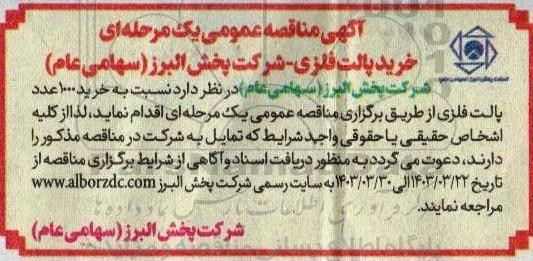 آگهی مناقصه عمومی یک مرحله ای
خرید پالت فلزی-شرکت پخش البرز (سهامی عام)
شرکت پخش البرز (سهامی عام) در نظر دارد نسبت به خرید ۱۰۰۰ عدد
پالت فلزی از طریق برگزاری مناقصه عمومی یک مرحله ای اقدام نماید، لذا از کلیه
اشخاص حقیقی یا حقوقی واجد شرایط که تمایل به شرکت در مناقصه مذکور را
دارند، دعوت می گردد به منظور دریافت اسناد و آگاهی از شرایط برگزاری مناقصه از
تاریخ ۱۴۰۳/۰۳/۲۲ الی ۱۴۰۳/۰۳/۳۰ به سایت رسمی شرکت پخش البرز www.alborzdc.com
مراجعه نمایند.
شرکت پخش البرز (سهامی عام)